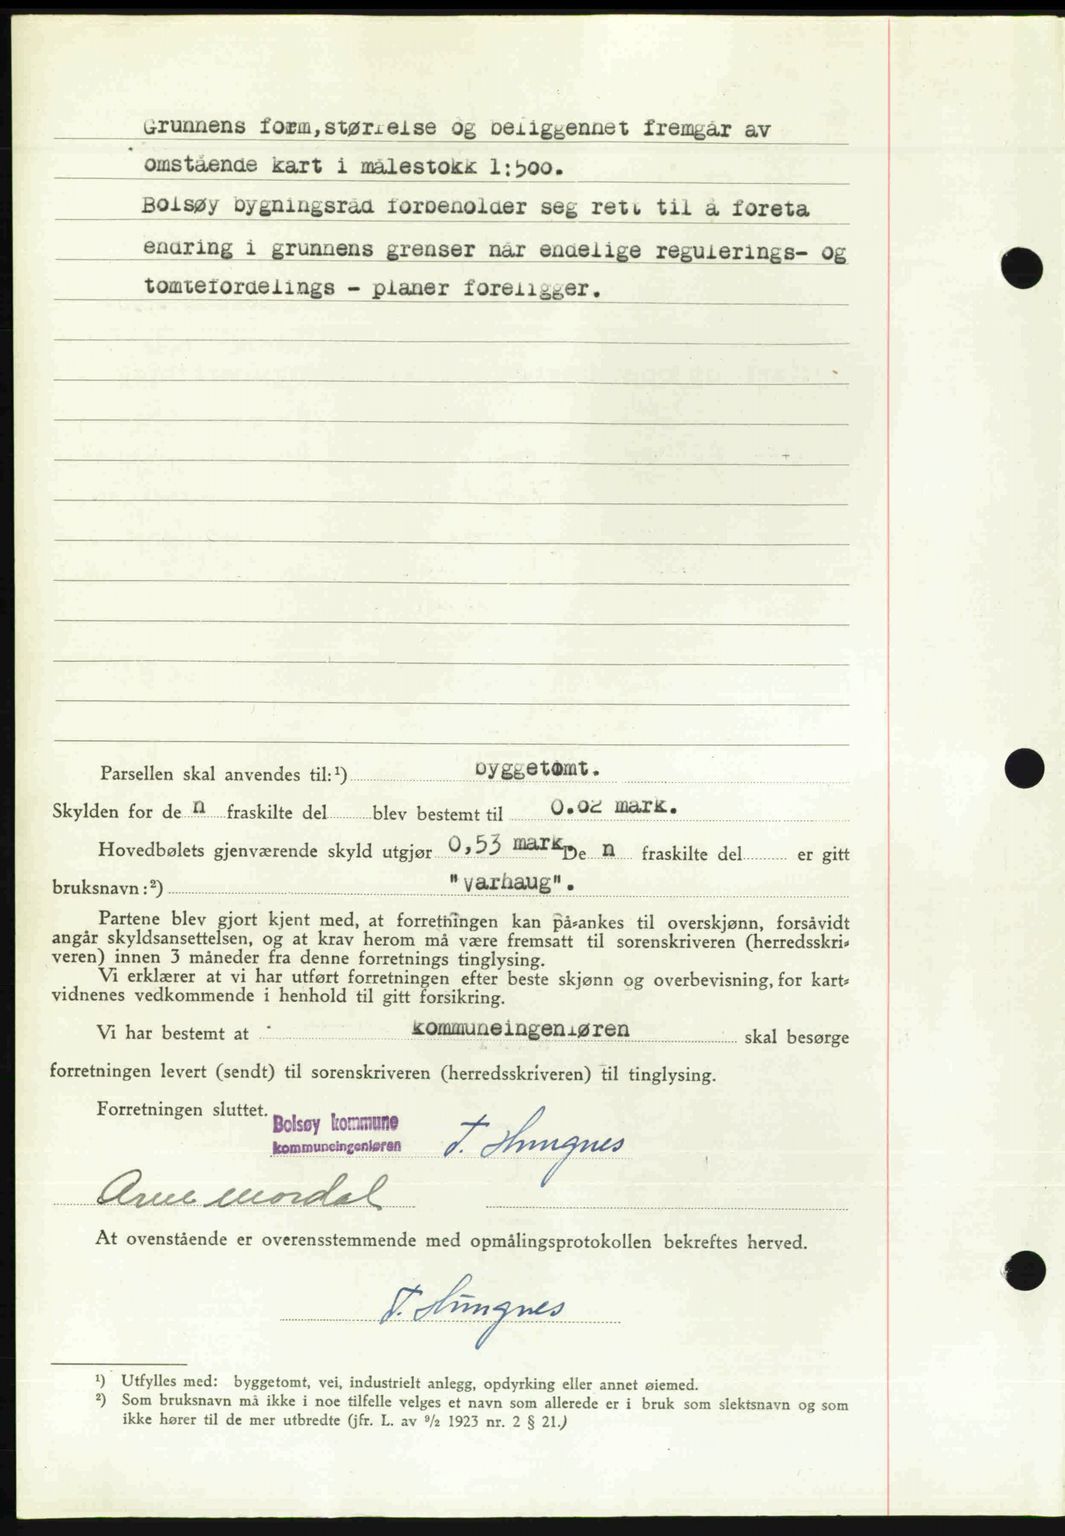 Grunnens form,størrelse og beliggenhet fremgår av
omstående kart i målestokk 1:500.
Bolsøy bygningsråd forbeholder seg rett til å foreta
endring i grunnens grenser når endelige regulerings- og
tomtefordelings - planer foreligger.
Parsellen skal anvendes til:¹) byggetomt.
Skylden for de n fraskilte del blev bestemt til 0.02 mark.
Hovedbølets gjenværende skyld utgjør 0,53 mark. De n fraskilte del er gitt
bruksnavn:²) "Varhaug".
Partene blev gjort kjent med, at forretningen kan på-ankes til overskjønn, forsåvidt
angår skyldsansettelsen, og at krav herom må være fremsatt til sorenskriveren (herredsskri-
veren) innen 3 måneder fra denne forretnings tinglysing.
Vi erklærer at vi har utført forretningen efter beste skjønn og overbevisning, for kart-
vidnenes vedkommende i henhold til gitt forsikring.
Vi har bestemt at kommuneingeniøren skal besørge
forretningen levert (sendt) til sorenskriveren (herredsskriveren) til tinglysing.
Forretningen sluttet.
Bolsøy kommune
kommuneingeniøren
T. Hungnes
Arne Mordal
At ovenstående er overensstemmende med opmålingsprotokollen bekreftes herved.
T. Hungnes
¹) Utfylles med: byggetomt, vei, industrielt anlegg, opdyrking eller annet øiemed.
²) Som bruksnavn må ikke i noe tilfelle velges et navn som allerede er i bruk som slektsnavn og som
ikke hører til de mer utbredte (jfr. L. av ⁹/₂ 1923 nr. 2 § 21.)